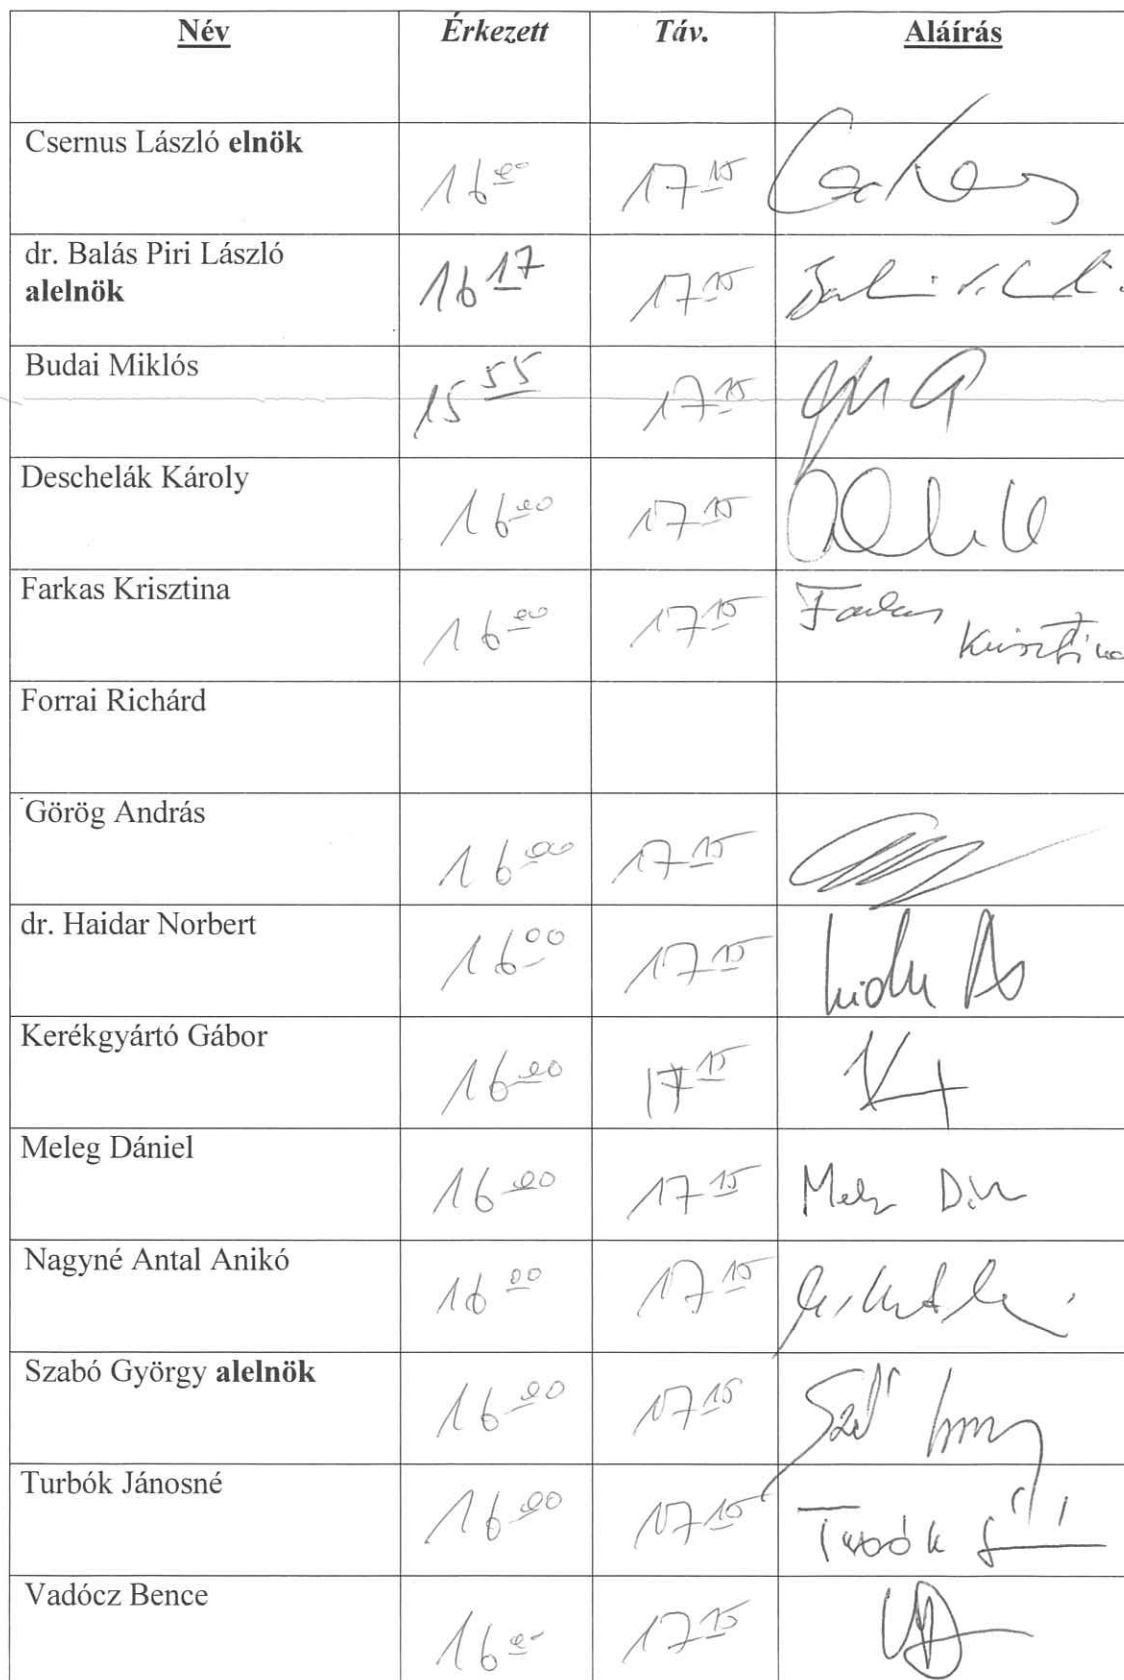 Név Érkezett Táv. Aláírás
Csernus László elnök 16 00 17 15
dr. Balás Piri László 16 17 17 15
alelnök
Budai Miklós 15 55 17 15
Deschelák Károly 16 00 17 15
Farkas Krisztina 16 00 17 15 Farkas
Krisztina
Forrai Richárd
Görög András 16 00 17 15
dr. Haidar Norbert 16 00 17 15
Kerékgyártó Gábor 16 00 17 15
Meleg Dániel 16 00 17 15
Nagyné Antal Anikó 16 00 17 15
Szabó György alelnök 16 00 17 15
Turbók Jánosné 16 00 17 15
Vadócz Bence 16 00 17 15